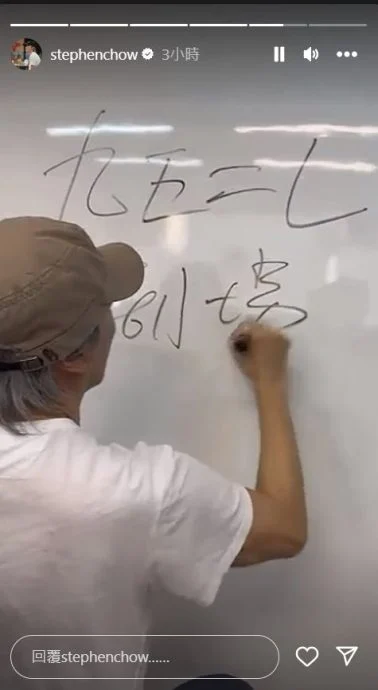 stephenchow 3小時
九五二七
回覆stephenchow......